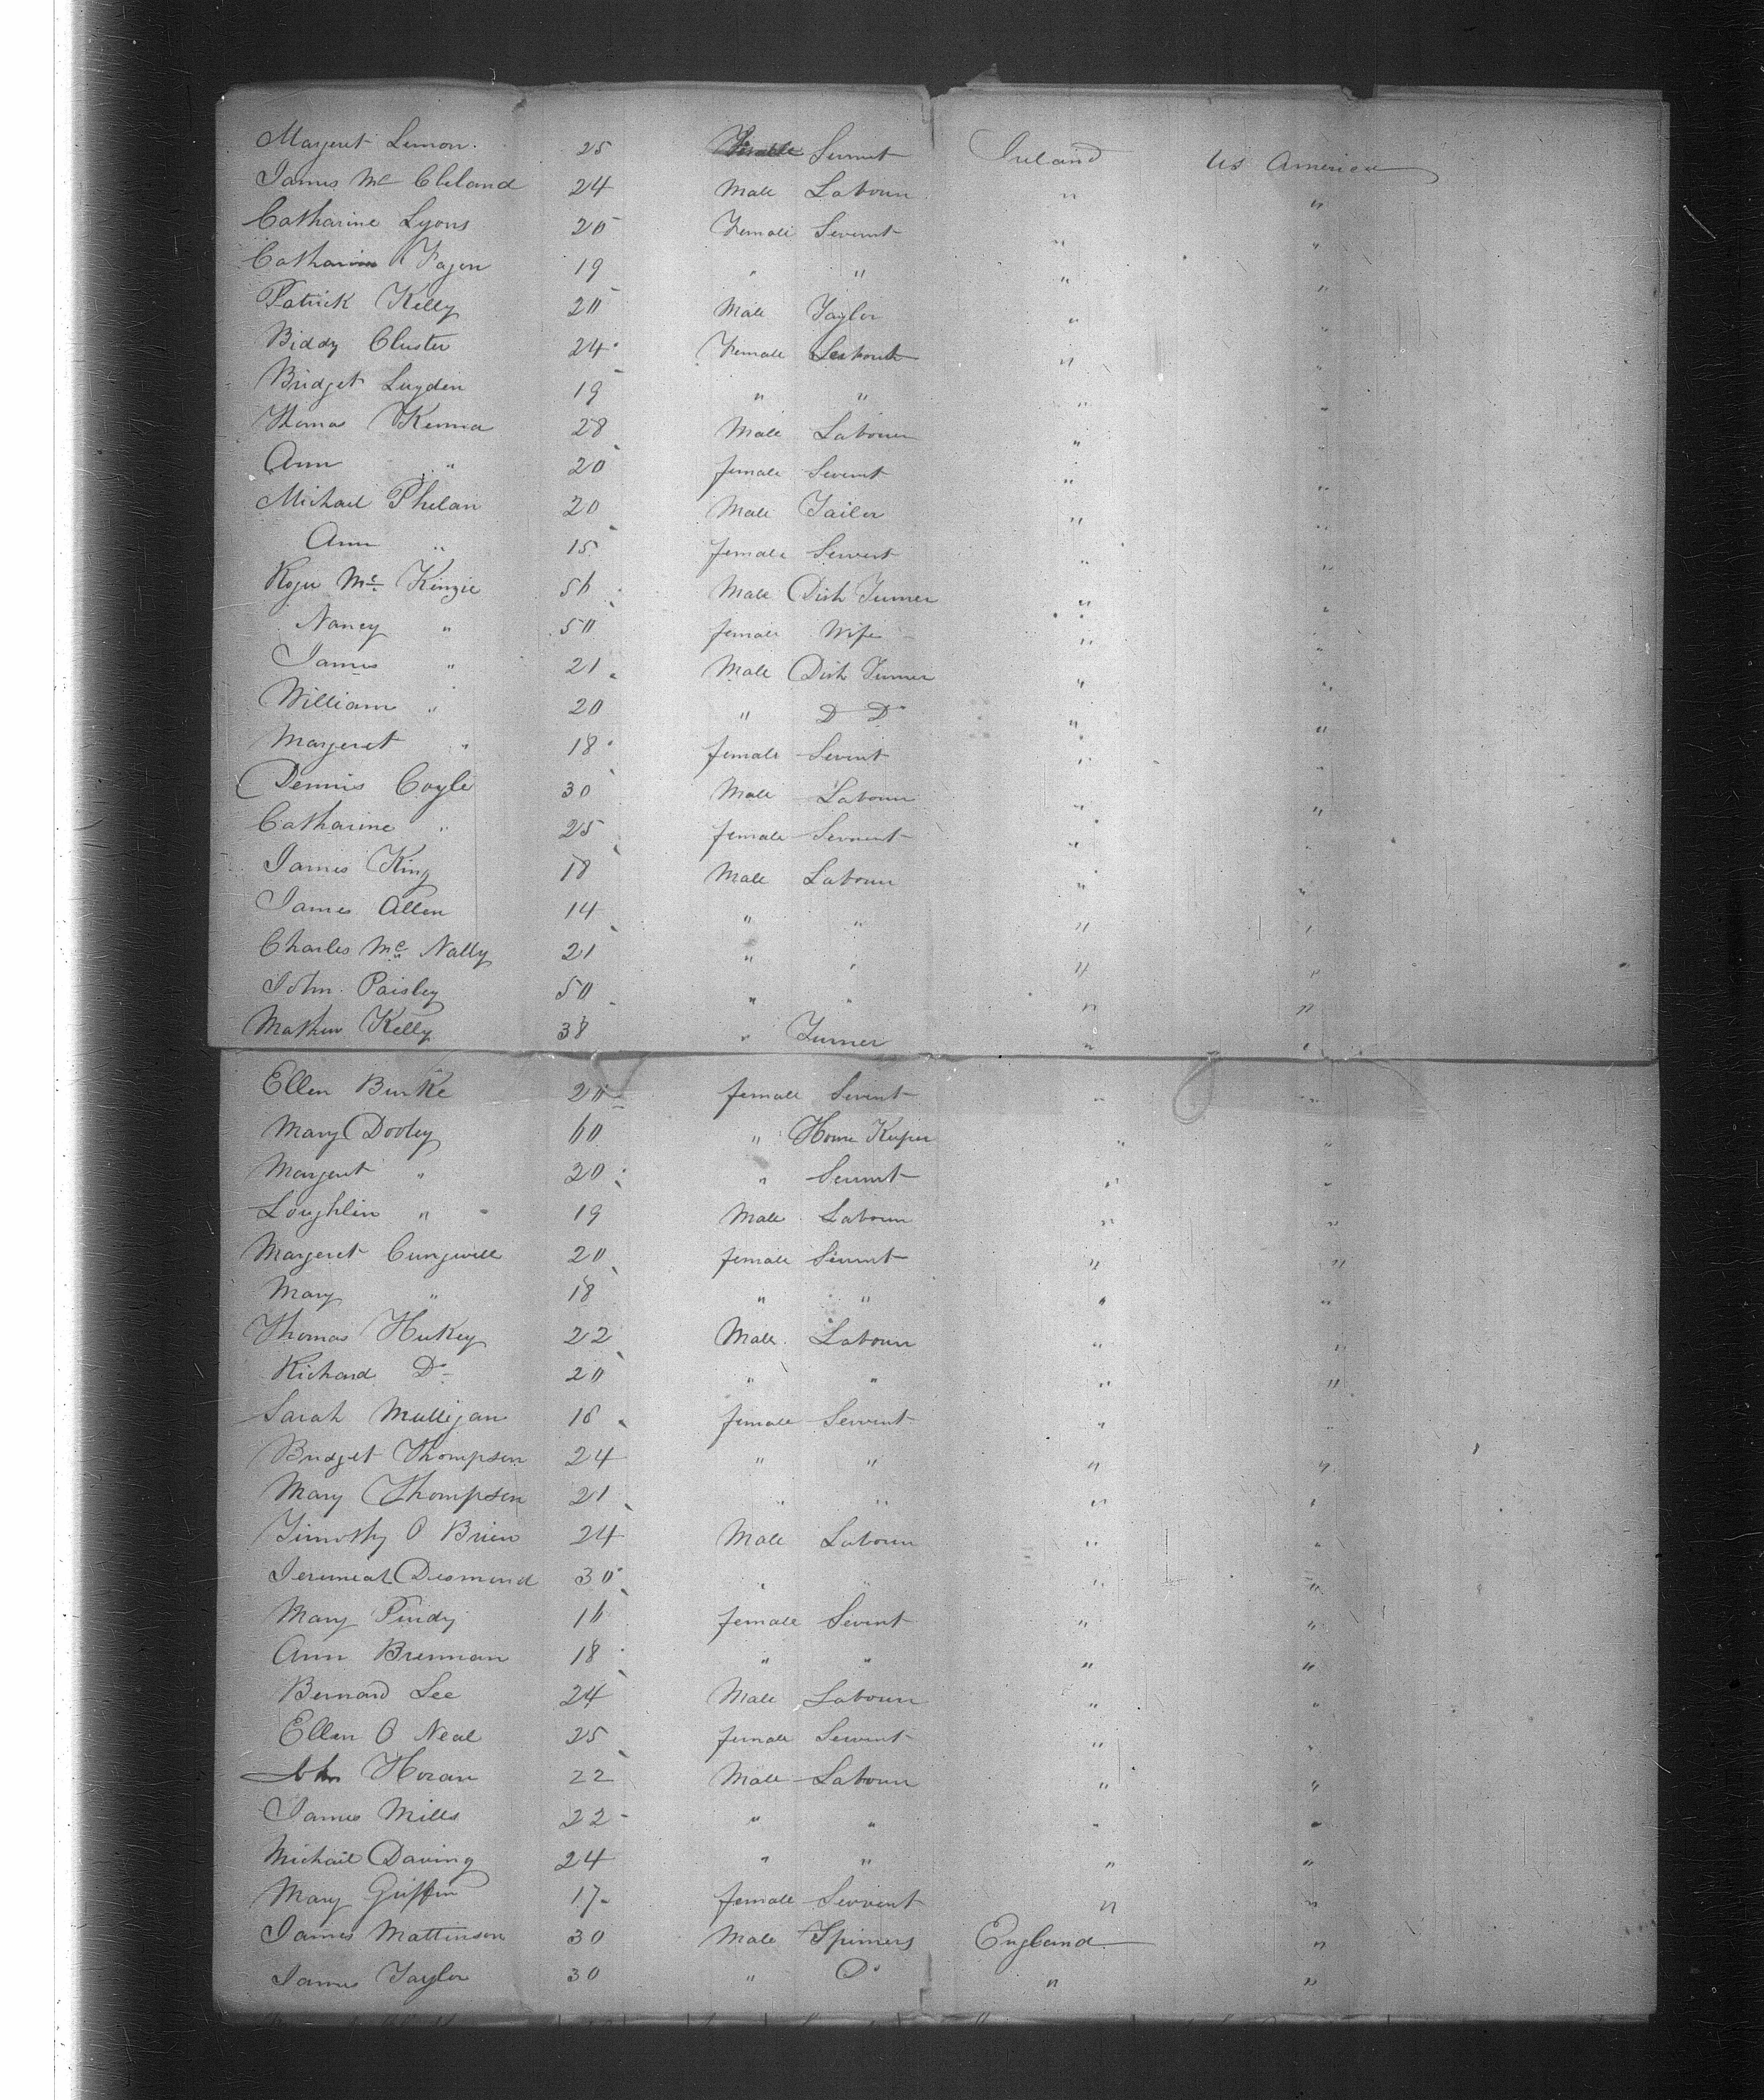 Margeret Lemon. 25 Female Servnt Ireland Us America
James Mc Cleland 24 Male Labourr " "
Catharine Lyons 20 Female Servent " "
Catharine Fagen 19 " " " "
Patrick Kelly 20 Male Taylor " "
Biddy Cluster 24 Female " "
Bridget Luyden 19 " " " "
Thomas Kenna 28 Male Labourer " "
Ann " 20 female Servent " "
Michael Phelan 20 Male Tailor " "
Ann " 15 female Servent " "
Roger Mc Kinzie 56 Male Dish Turner " "
Nancy " 50 female Wife " "
James " 21 Male Dish Turner " "
William " 20 " D D " "
Margeret " 18 female Servent " "
Dennis Coyle 30 Male Labourr " "
Catharine " 25 female Servent " "
James King 18 Male Labourr " "
James Allen 14 " " " "
Charles Mc Nally 21 " " " "
John Paisley 50 " " " "
Mathew Kelly 38 " Turner " "
Ellen Burke 20 female Servent " "
Mary Dooley 60 " House Keeper " "
Margeret " 20 " Servent " "
Loughlin " 19 Male Labourr " "
Margeret 20 female Servent " "
Mary " 18 " " " "
Thomas Hickey 22 Male Labourr " "
Richard Do 20 " " " "
Sarah Mulligan 16 female Servent " "
Bridget Thompson 24 " " " "
Mary Thompson 21 " " " "
Timothy O Brien 24 Male Labourr " "
Jeremeah Desmond 30 " " " "
Mary Purdy 16 female Servent " "
Ann Brennan 18 " " " "
Bernard Lee 24 Male Labourr " "
Ellen O Neal 25 female Servent " "
John Horan 22 Male Labourr " "
James Mills 22 " " " "
Michail Daving 24 " " " "
Mary Griffin 17 female Servent " "
James Mattinson 30 Male Spinners England "
James Taylor 30 " Do " "